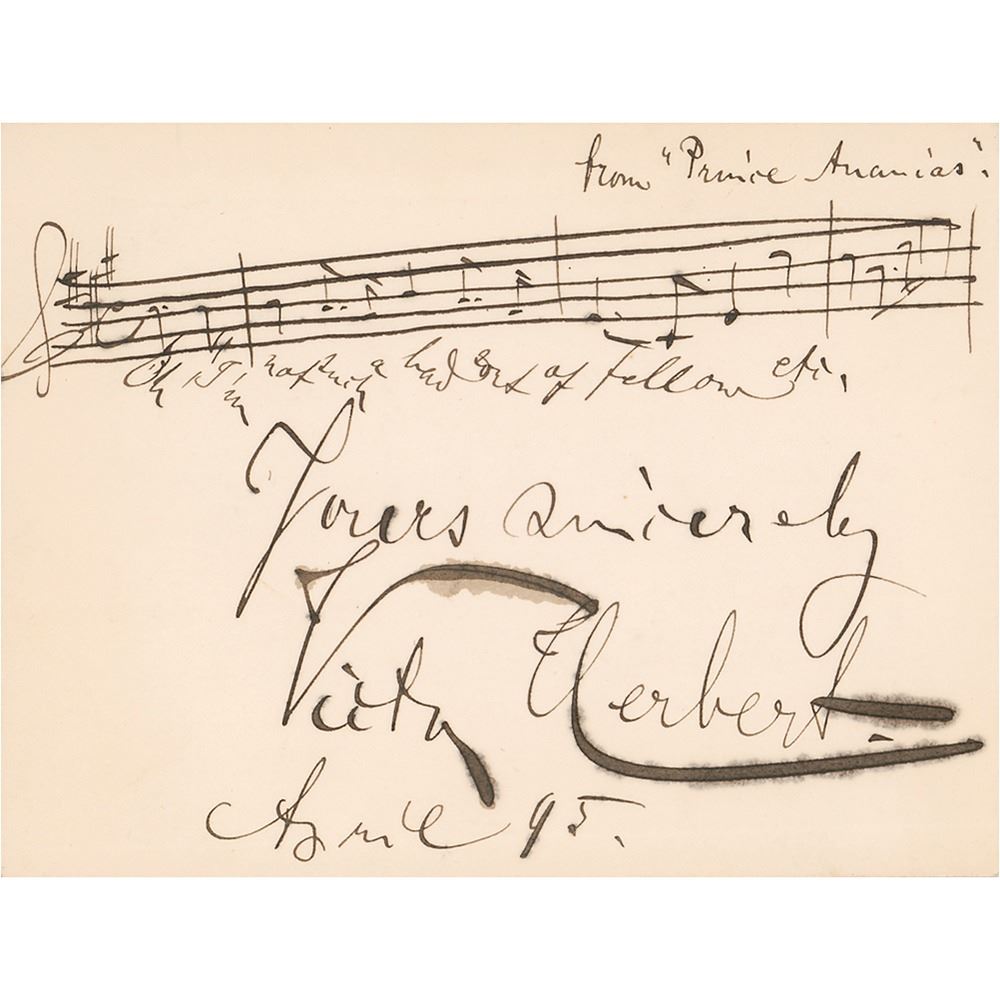 from "Prince Ananias".
Oh I'm not such a bad sort of fellow etc.
Yours sincerely
Victor Herbert
April 95.